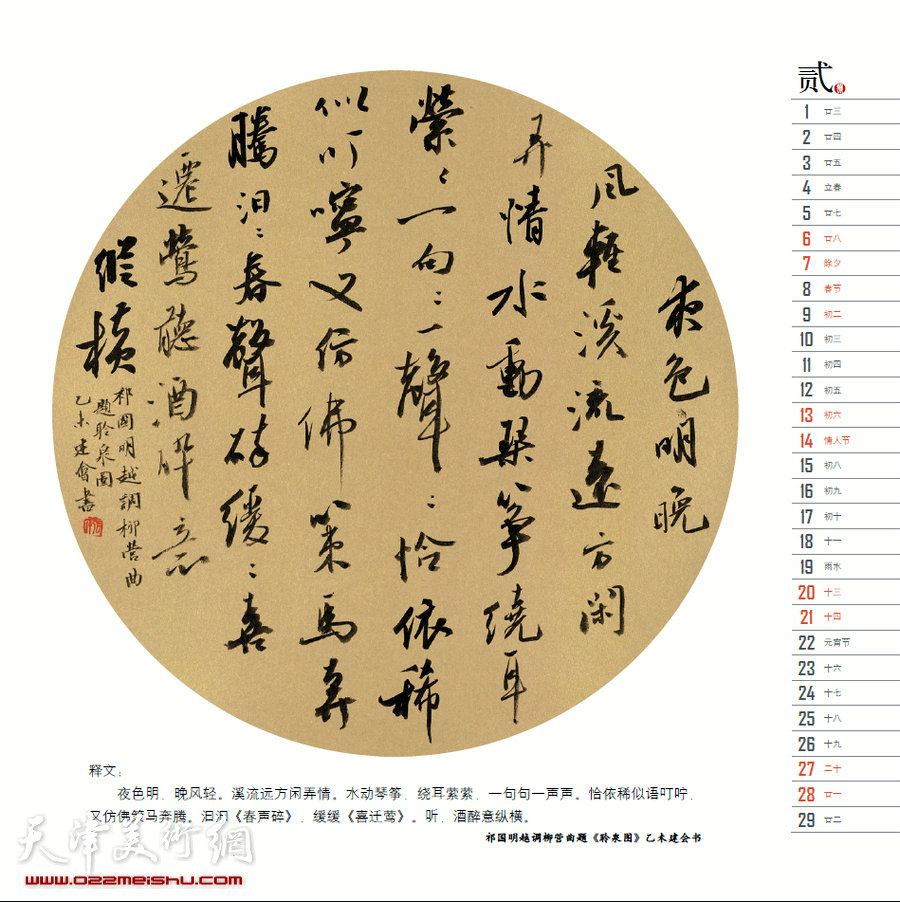 夜色明晚
風輕溪流遠方閑
弄情水動琴箏繞耳
縈〻一句〻一聲〻恰依稀
似叮嚀又仿佛策馬奔
騰汩〻春聲碎緩〻喜
遷鶯聽酒醉意
縱橫
祁國明越調柳營曲
題聆泉圖
乙未建會書
释文：
夜色明，晚风轻。溪流远方闲弄情。水动琴筝，绕耳萦萦，一句句一声声。恰依稀似语叮咛，
又仿佛策马奔腾。汩汩《春声碎》，缓缓《喜迁莺》。听，酒醉意纵横。
祁国明越调柳营曲题《聆泉图》乙未建会书
天津美術網
www.022meishu.com
贰
1 廿三
2 廿四
3 廿五
4 立春
5 廿七
6 廿八
7 除夕
8 春节
9 初二
10 初三
11 初四
12 初五
13 初六
14 情人节
15 初八
16 初九
17 初十
18 十一
19 雨水
20 十三
21 十四
22 元宵节
23 十六
24 十七
25 十八
26 十九
27 二十
28 廿一
29 廿二